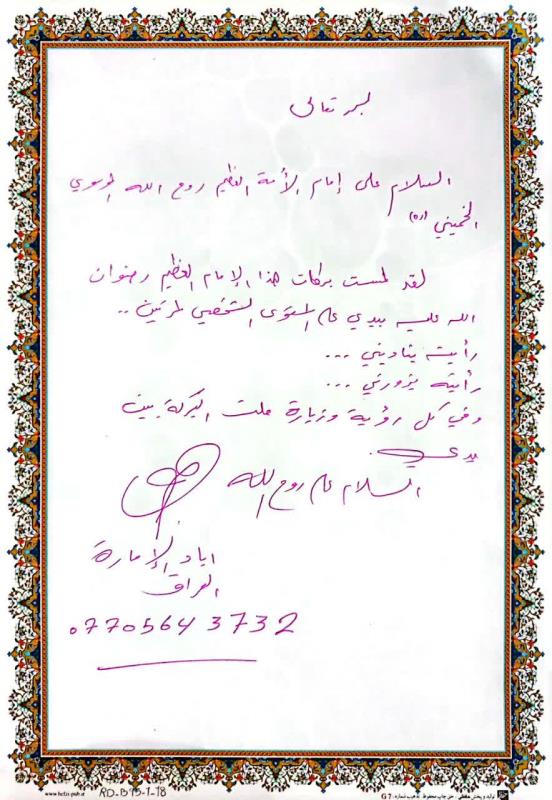 بسمه تعالى
السلام على إمام الأمة العظيم روح الله الموسوي
الخميني (ره)
لقد لمست بركات هذا الإمام العظيم رضوان
الله عليه بيدي على المستوى الشخصي لمرتين ..
رأيته يناديني ...
رأيته يزورني ...
وفي كل رؤية وزيارة حلت البركة بين
يدي.
السلام على روح الله
اياد الإمارة
العراق
07705643732
www.hefzi-pub.ir
RD-B95-1-18
تولید و پخش حافظی - حق چاپ محفوظ تذهیب شماره: G 7